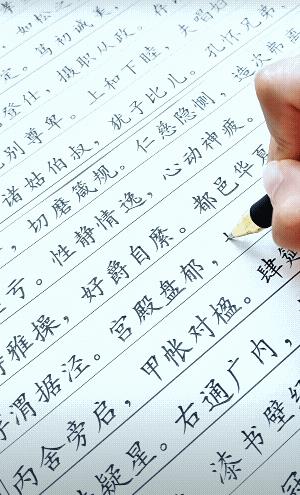 如松之
定。笃初诚美，
登仕，摄职从政。存
别尊卑。上和下睦，夫唱妇
诸姑伯叔，犹子比儿。孔怀兄弟，
，切磨箴规。仁慈隐恻，造次弗
亏。性静情逸，心动神疲。
雅操，好爵自縻。都邑华夏
渭据泾。宫殿盘郁，
丙舍旁启，甲帐对楹。肆筵
疑星。右通广内，
漆书壁经